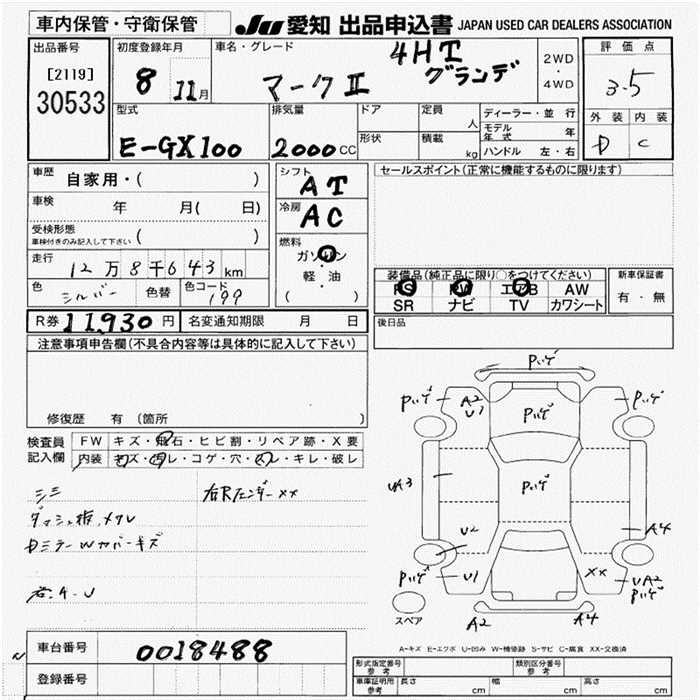 車内保管・守衛保管
JU 愛知 出品申込書 JAPAN USED CAR DEALERS ASSOCIATION
出品番号
[2119]
30533
初度登録年月
8 11月
車名・グレード
4HT
マークII グランデ
2WD
・
4WD
評価点
3.5
外装 内装
D C
型式
E-GX100
排気量
2000CC
ドア
形状
定員
人
積載
kg
ディーラー・並行
モデル年式 年
ハンドル 左・右
車歴 自家用・( )
車検 年 月( 日)
受検形態
車検付きのみ記入して下さい ( )
走行
12万8千643km
色 シルバー 色替 色コード 199
シフト
AT
冷房
AC
燃料
ガソリン
・
軽・油
( )
セールスポイント(正常に機能するものに限ります)
装備品(純正品に限り○をつけてください)
PS PW エアB AW
SR ナビ TV カワシート
新車保証書
有・無
R券 11930円 名変通知期限 月 日
後日品
注意事項申告欄(不具合内容等は具体的に記入して下さい)
修復歴 有 (箇所 )
検査員
記入欄
FW キズ・飛石・ヒビ割・リペア跡・X要
内装 キズ・汚レ・コゲ・穴・スレ・キレ・破レ
シミ
ダッシュ板、メクレ
Dミラー Wカバーキズ
右Rフェンダーxx
Pハゲ
Pハゲ
A2
U1
Pハゲ
Pハゲ
UA3
Pハゲ
U2
A4
Pハゲ
U1
XX
UA2
Pハゲ
スペア
A2
A4
A-キズ E-エクボ U-凹み W-補修跡 S-サビ C-腐食 XX-交換済
車台番号
0018488
登録番号
形式指定番号
参考
類別区分番号
車庫証明用
参考
長さ cm 幅 cm 高さ cm